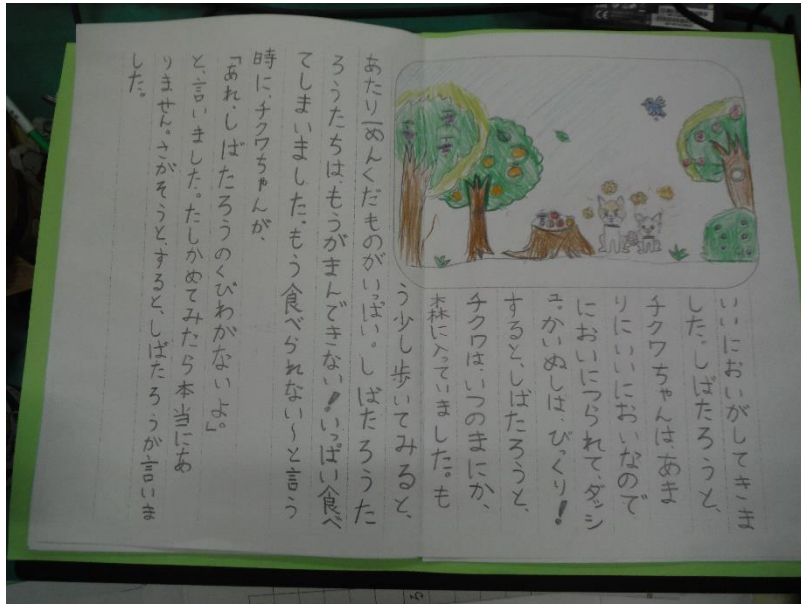 いいにおいがしてきま
した。しばたろうと、
チクワちゃんは、あま
りにいいにおいなので、
においにつられて、ダッシ
ュ。かいぬしは、びっくり！
すると、しばたろうと、
チクワは、いつのまにか、
森に入っていました。も
う少し歩いてみると、
あたり一めんくだものがいっぱい。しばたろうた
ろうたちは、もうがまんできない！いっぱい食べ
てしまいました。もう食べられない～と言う
時に、チクワちゃんが、
「あれ、しばたろうのくびわがないよ。」
と、言いました。たしかめてみたら本当にあ
りません。さがそうと、すると、しばたろうが言いま
した。
CE